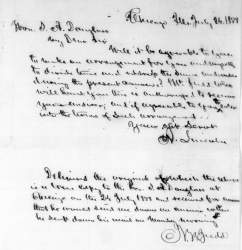 Chicago, Ills, July 24, 1858
Hon. S. A. Douglas
My Dear Sir
Will it be agreeable to you
to make an arrangement for you and myself
to divide time and address the same audiences
the present canvass? Mr. Judd who
will hand you this is authorized to receive
your answer; and if agreeable to you to enter
into the terms of such
Your obt. Servt
A. Lincoln
the original of which the within
is a true copy to the Hon S. A. Douglas at
Chicago on the 24 July 1858 and
that he
he sent down his
N. B. Judd